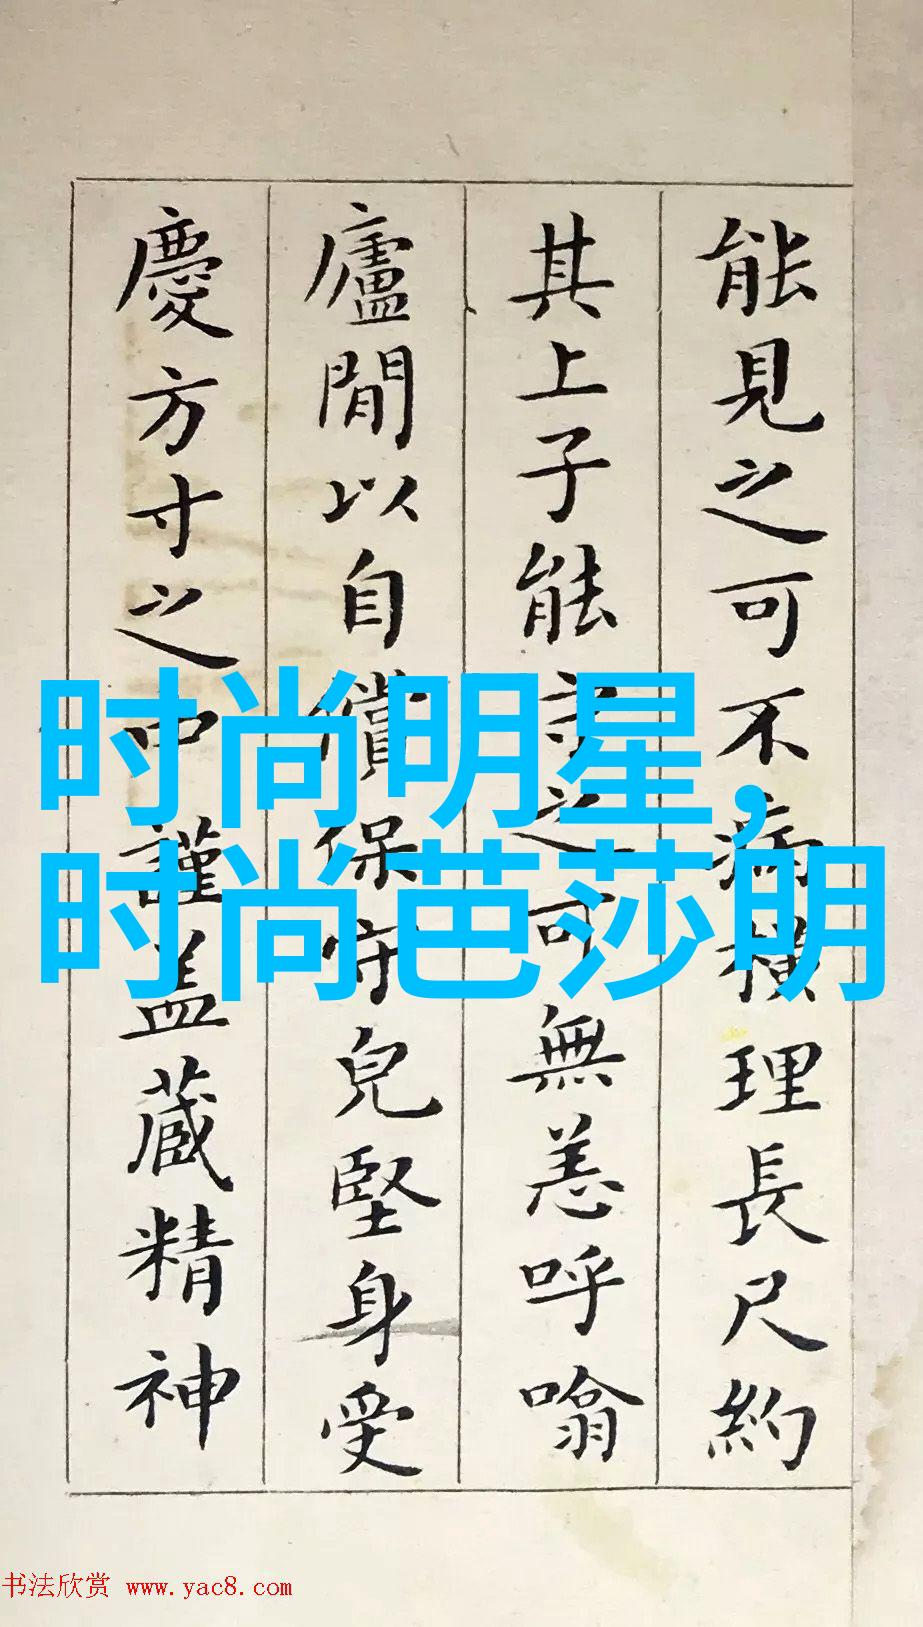 能見之可不病橫理長尺約
其上子能守之可無恙呼噏
廬閒以自償保守兒堅身受
慶方寸之中謹盖藏精神
时尚明星,
时尚芭莎明
书法欣赏 www.yac8.com